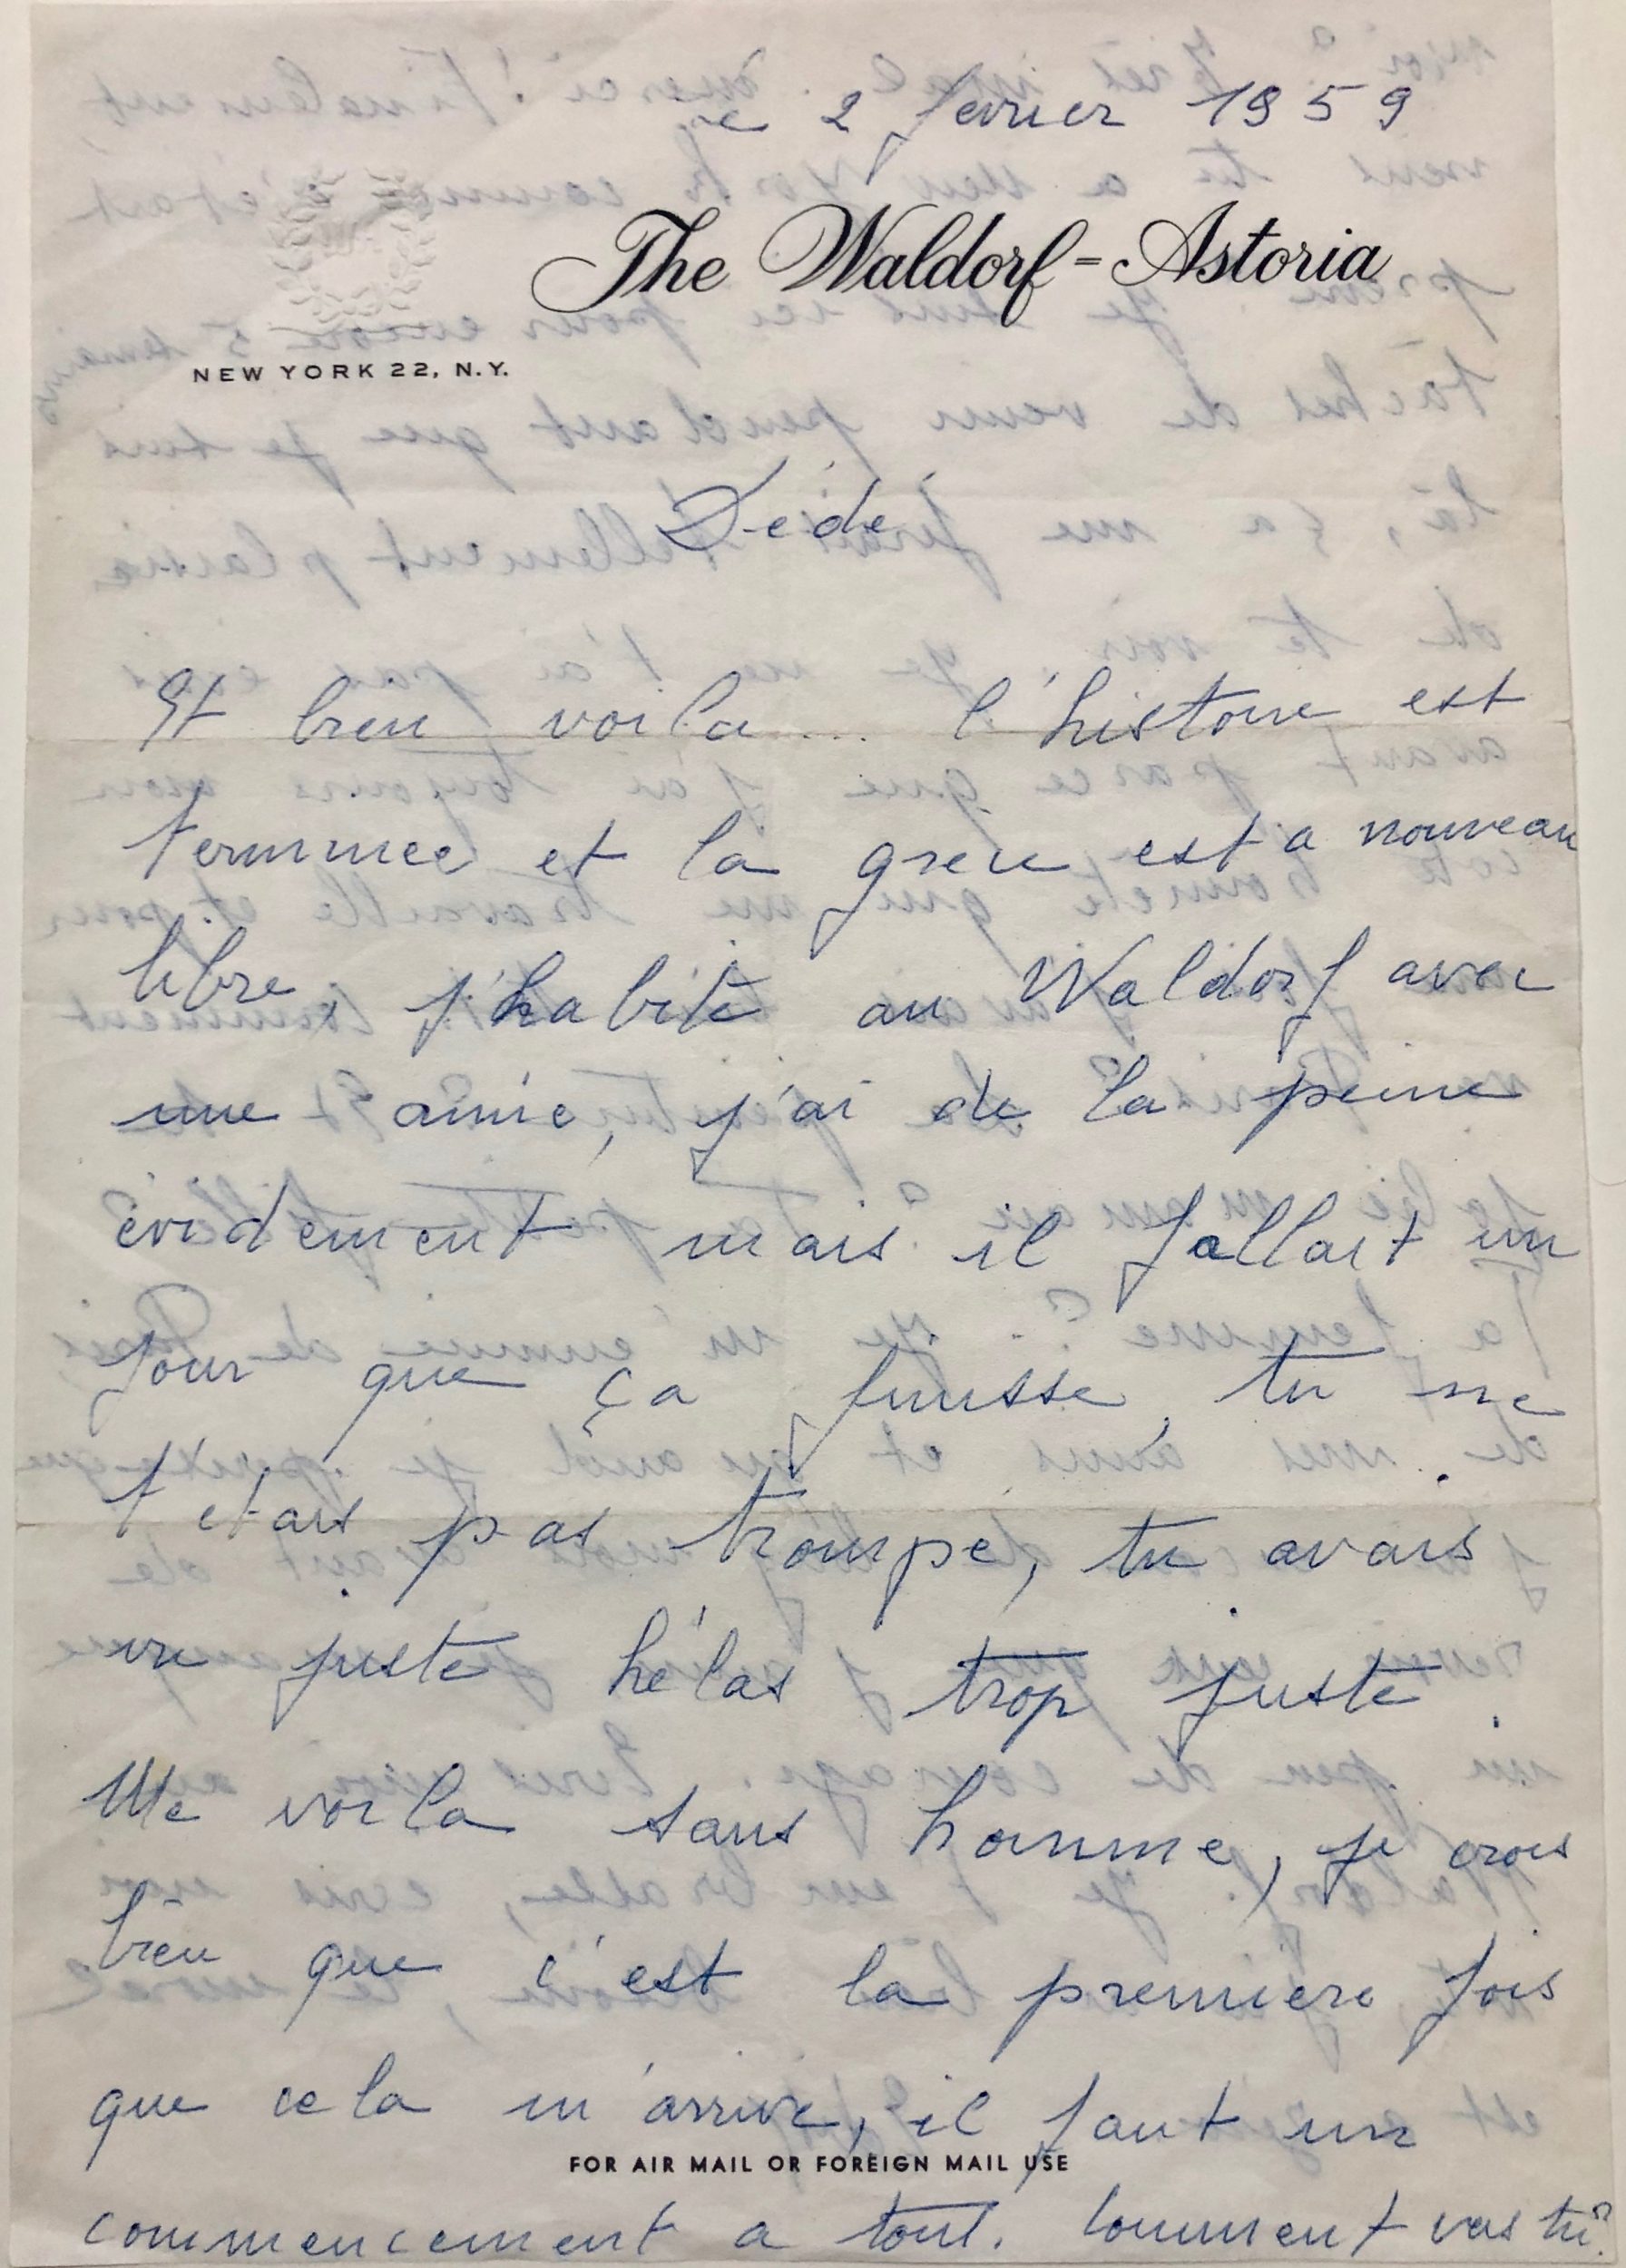 le 2 fevrier 1959
The Waldorf-Astoria
NEW YORK 22, N.Y.
Dédé
Et bien voila.... l'histoire est
terminee et la greu est a nouveau
libre, j'habite au Waldorf avec
une amie, j'ai de la peine
évidement mais il fallait un
jour que ça finisse, tu ne
t'etais pas trompé, tu avais
vu juste hélas trop juste.
Me voila sans homme, je crois
bien que c'est la premiere fois
que cela m'arrive, il faut un
FOR AIR MAIL OR FOREIGN MAIL USE
commencement a tout. Comment vas tu?